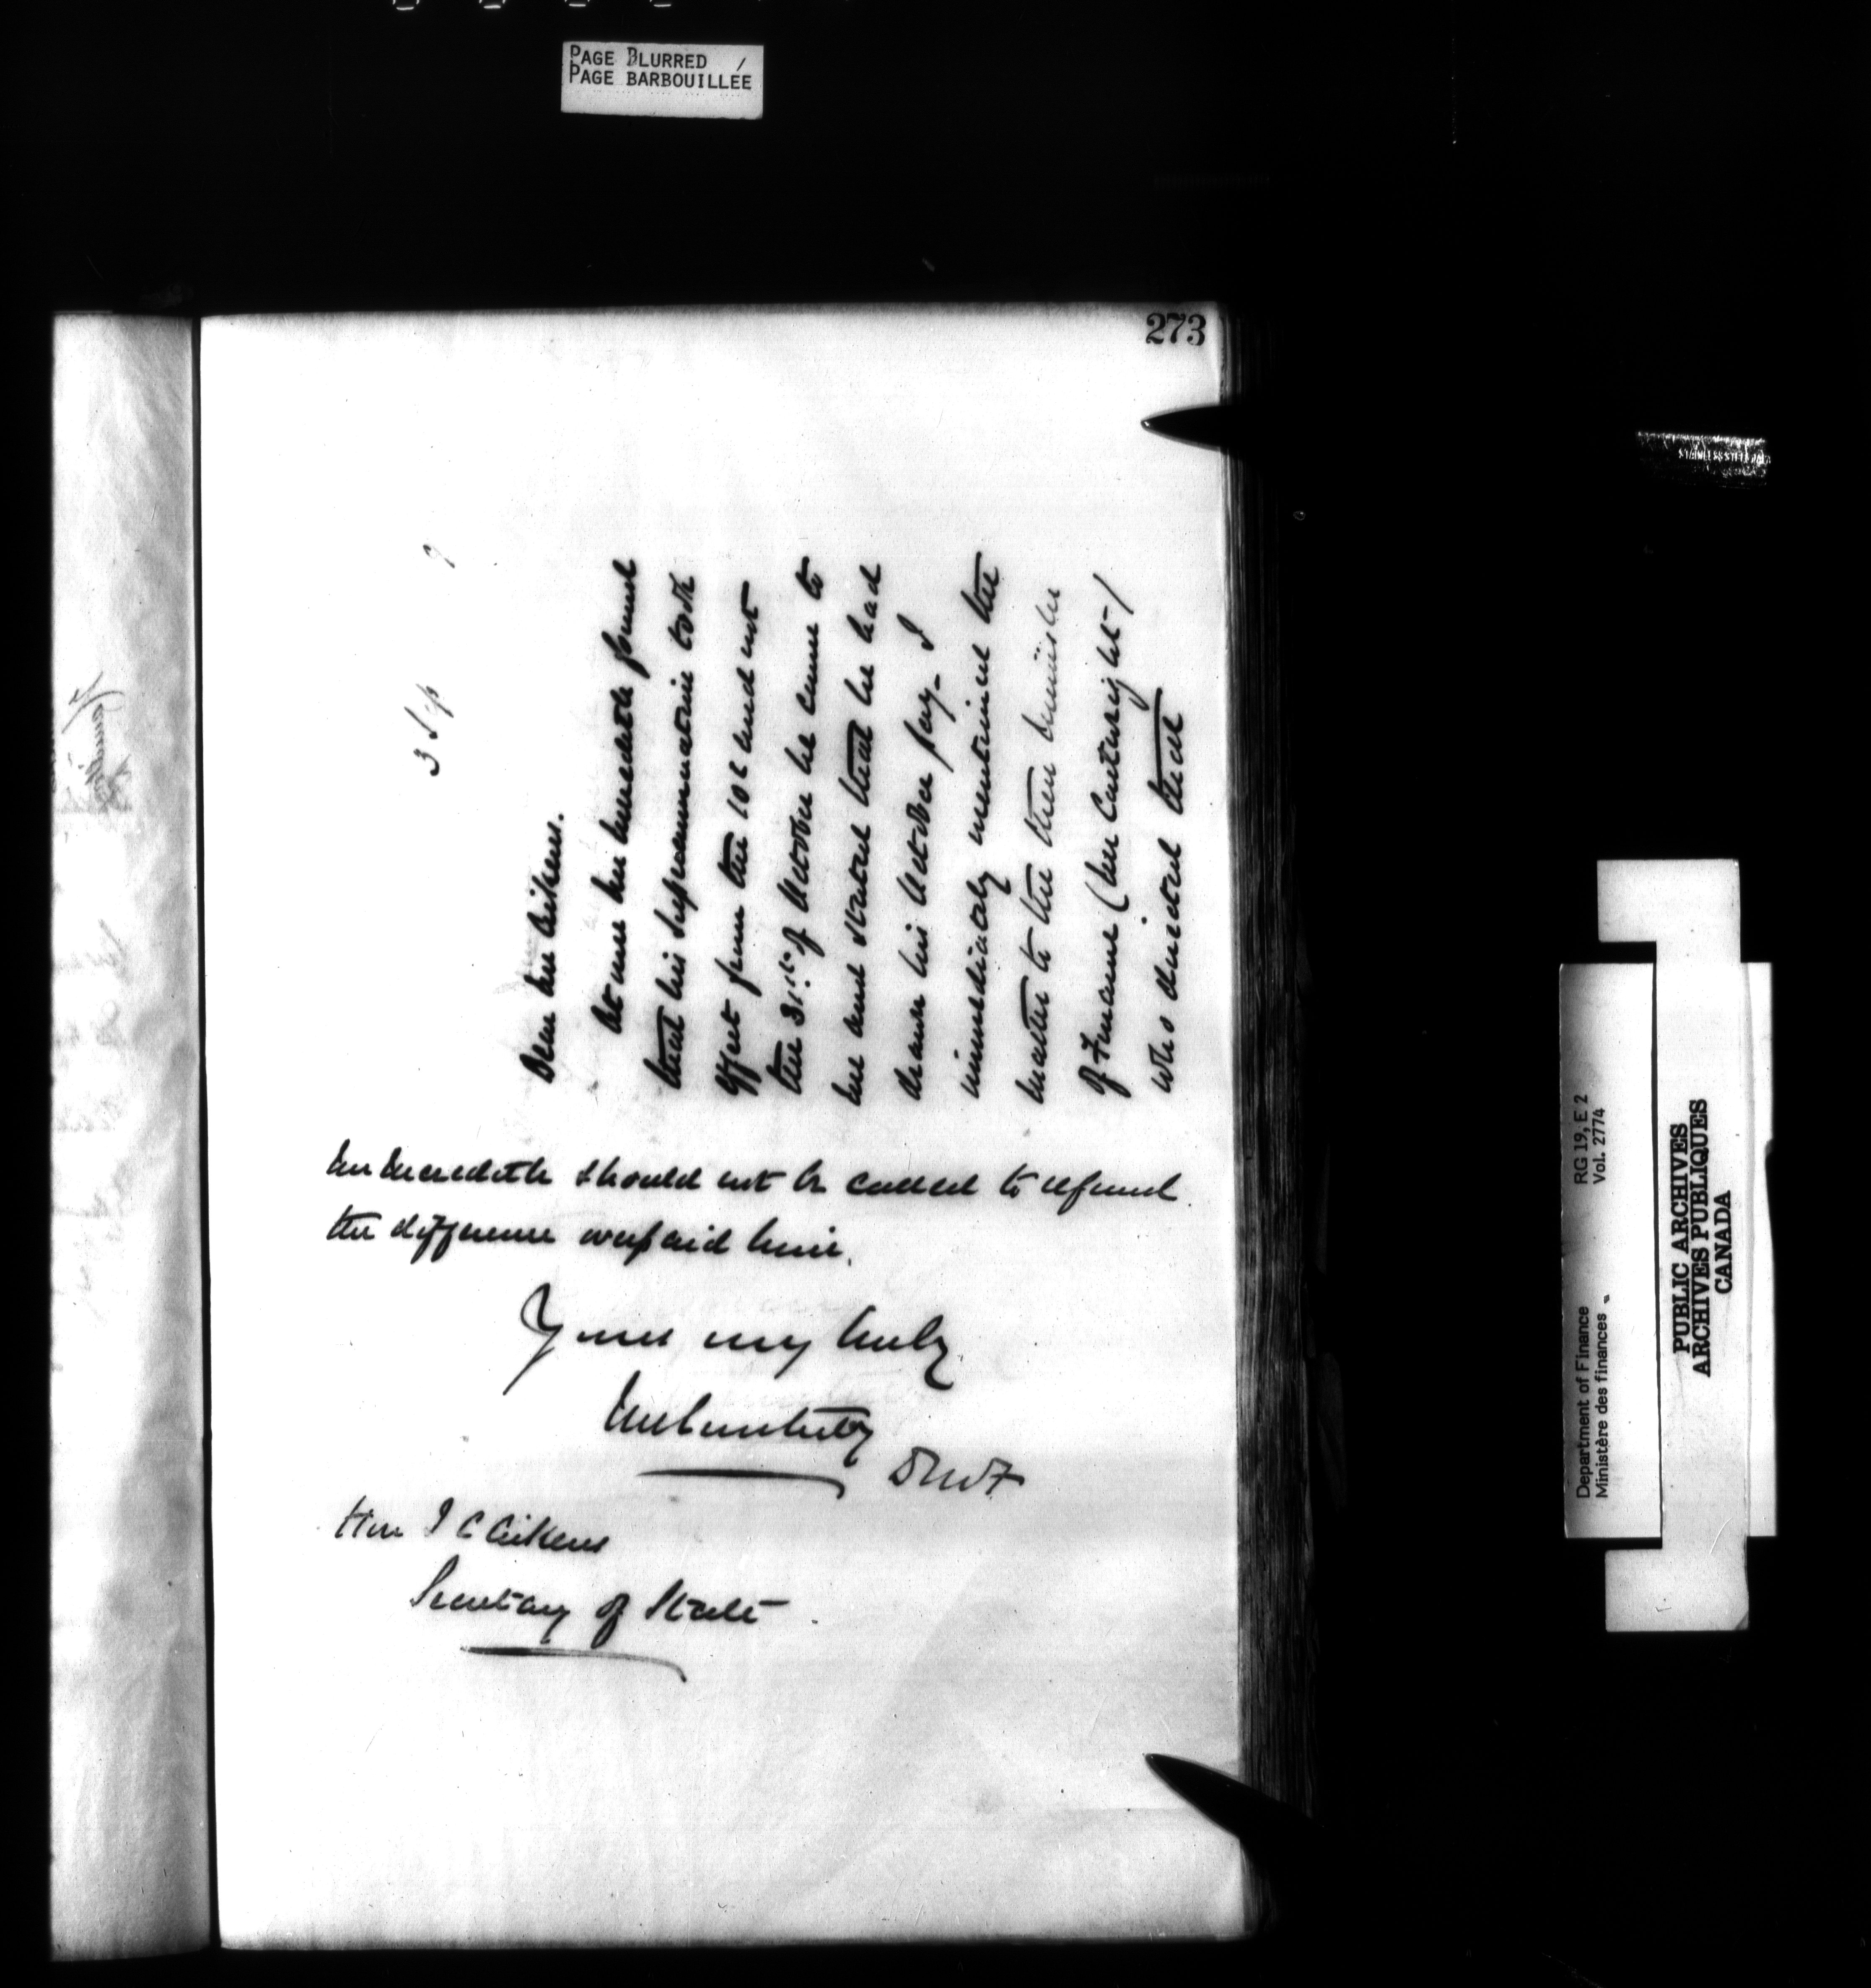 PAGE BLURRED /
PAGE BARBOUILLEE
273
3 Sep 9
Dear Mr Aikens.
At once Mr Meredith found
that his superannuation took
effect from the 10th and not
the 31st. of October he came to
me and stated that he had
drawn his October pay - I
immediately mentioned the
matter to the then Minister
of Finance (Mr Cartwright)
who directed that
Mr Meredith should not be called to refund
the difference overpaid him.
Yours very truly
JMCourtney
DMoF
Hon J C Aikens
Secretary of State
Department of Finance RG 19, E 2
Ministère des finances Vol. 2774
PUBLIC ARCHIVES
ARCHIVES PUBLIQUES
CANADA